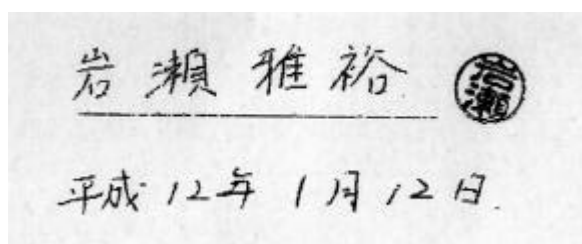 岩瀬雅裕 岩瀬
平成12年1月12日